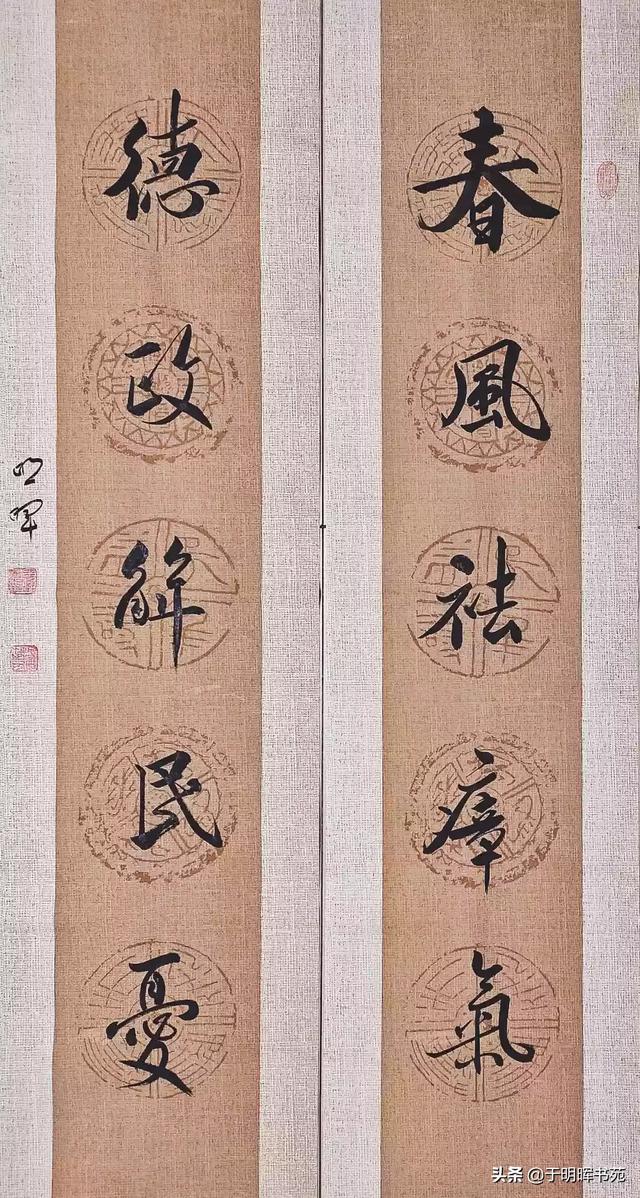 春風祛瘴氣
德政解民憂
明暉
头条 @于明晖书苑